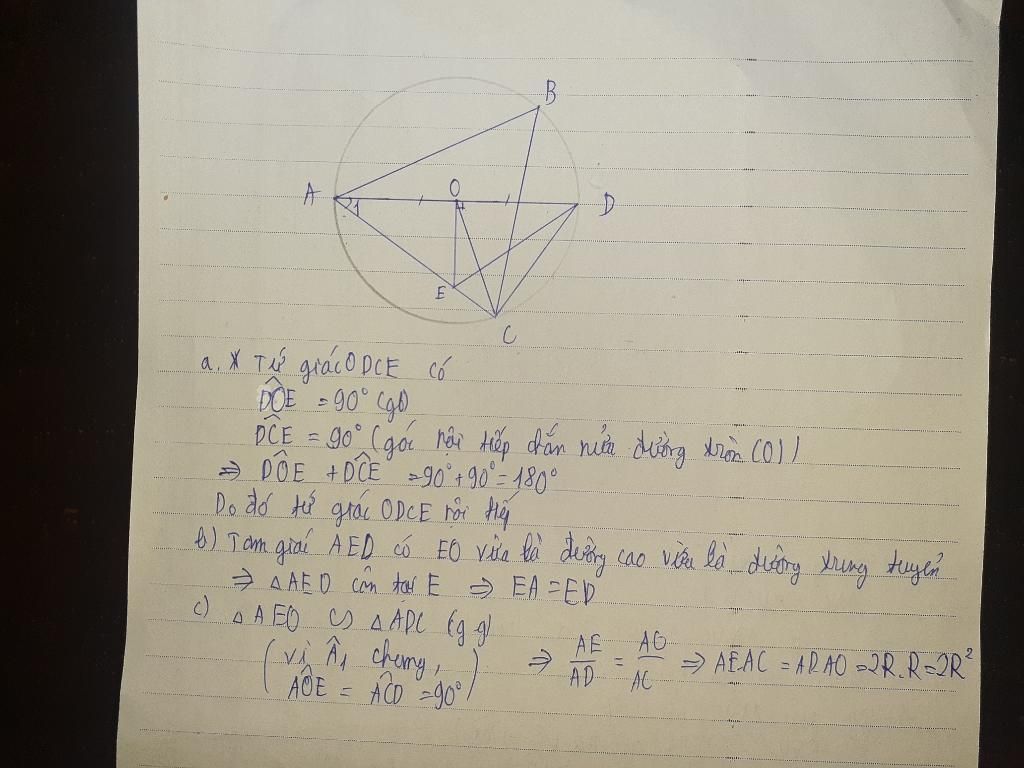 B
A
1
O
D
E
C
a. * Tứ giác ODCE có
DÔE = 90° (gt)
DĈE = 90° (góc nội tiếp chắn nửa đường tròn (O))
⇒ DÔE + DĈE = 90° + 90° = 180°
Do đó tứ giác ODCE nội tiếp
b) Tam giác AED có EO vừa là đường cao vừa là đường trung tuyến
⇒ △AED cân tại E ⇒ EA = ED
c) △AEO ∽ △ADC (g g)
(vì Â₁ chung, AÔE = AĈD = 90°) ⇒ AE/AD = AO/AC ⇒ AE.AC = AD.AO = 2R.R = 2R²